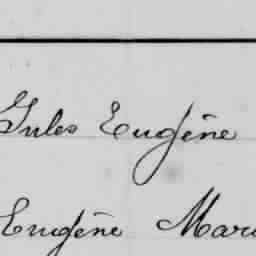 Jules Eugène
Eugène Mari